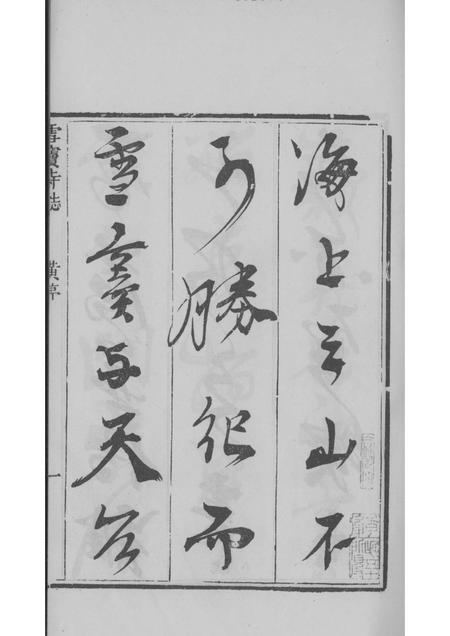 海上之山不
可勝紀而
雪竇与天台
雪竇寺誌 黃序 一